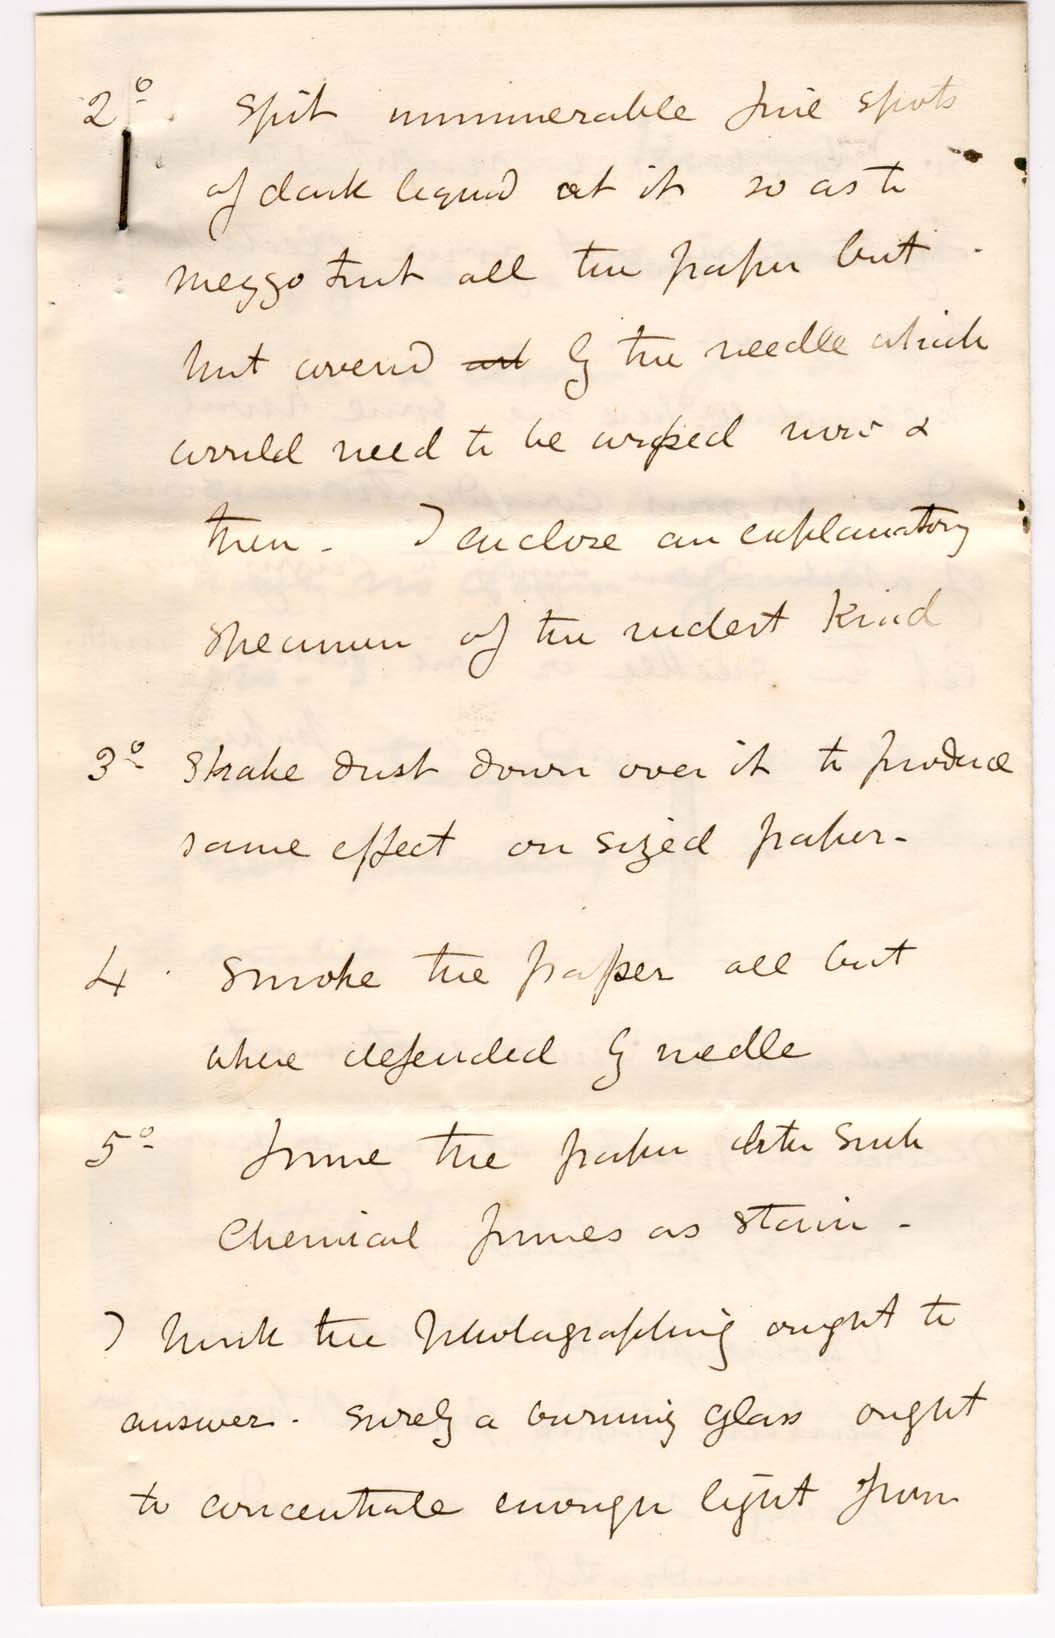 2º. Spit innumerable fine spots
of dark liquid at it so as to
mezzo tint all the paper but
that covered by the needle which
would need to be wiped now &
then. I enclose an explanatory
specimen of the rudest kind
3º Shake dust down over it to produce
same effect on sized paper.
4. Smoke the paper all but
where defended by needle
5º Fume the paper with such
Chemical fumes as stain.
I think the photographing ought to
answer. Surely a burning glass ought
to concentrate enough light from